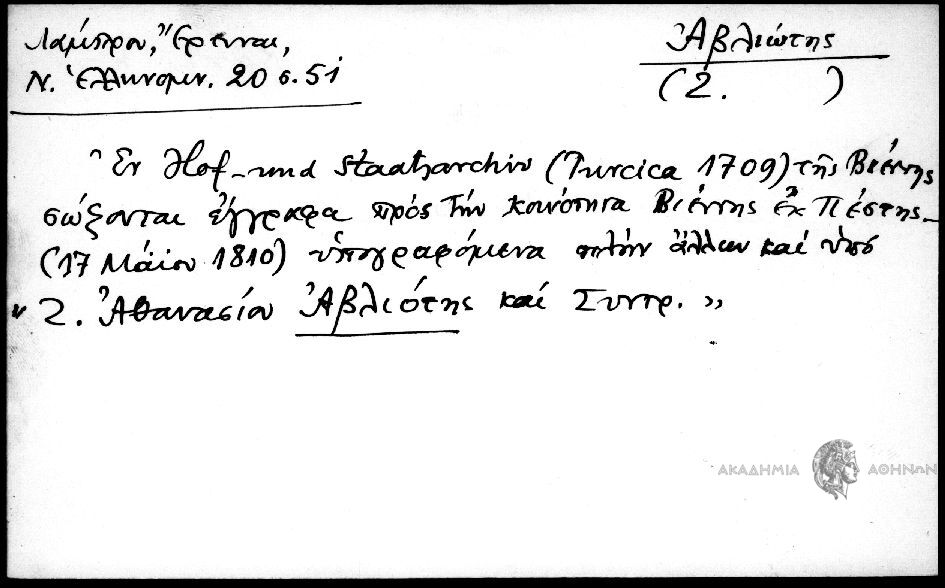 Λάμπρου, Ἔρευναι,
Ν. Ἑλληνομν. 20 σ. 51
Ἀβλιώτης
(2. )
Ἐν Hof- und Staatsarchiv (Turcica 1709) τῆς Βιέννης
σώζονται ἔγγραφα πρὸς τὴν κοινότητα Βιέννης ἐκ Πέστης
(17 Μαΐου 1810) ὑπογραφόμενα πλὴν ἄλλων καὶ ὑπὸ
" 2. Ἀθανασίου Ἀβλιότης καὶ Συντρ. "
ΑΚΑΔΗΜΙΑ ΑΘΗΝΩΝ